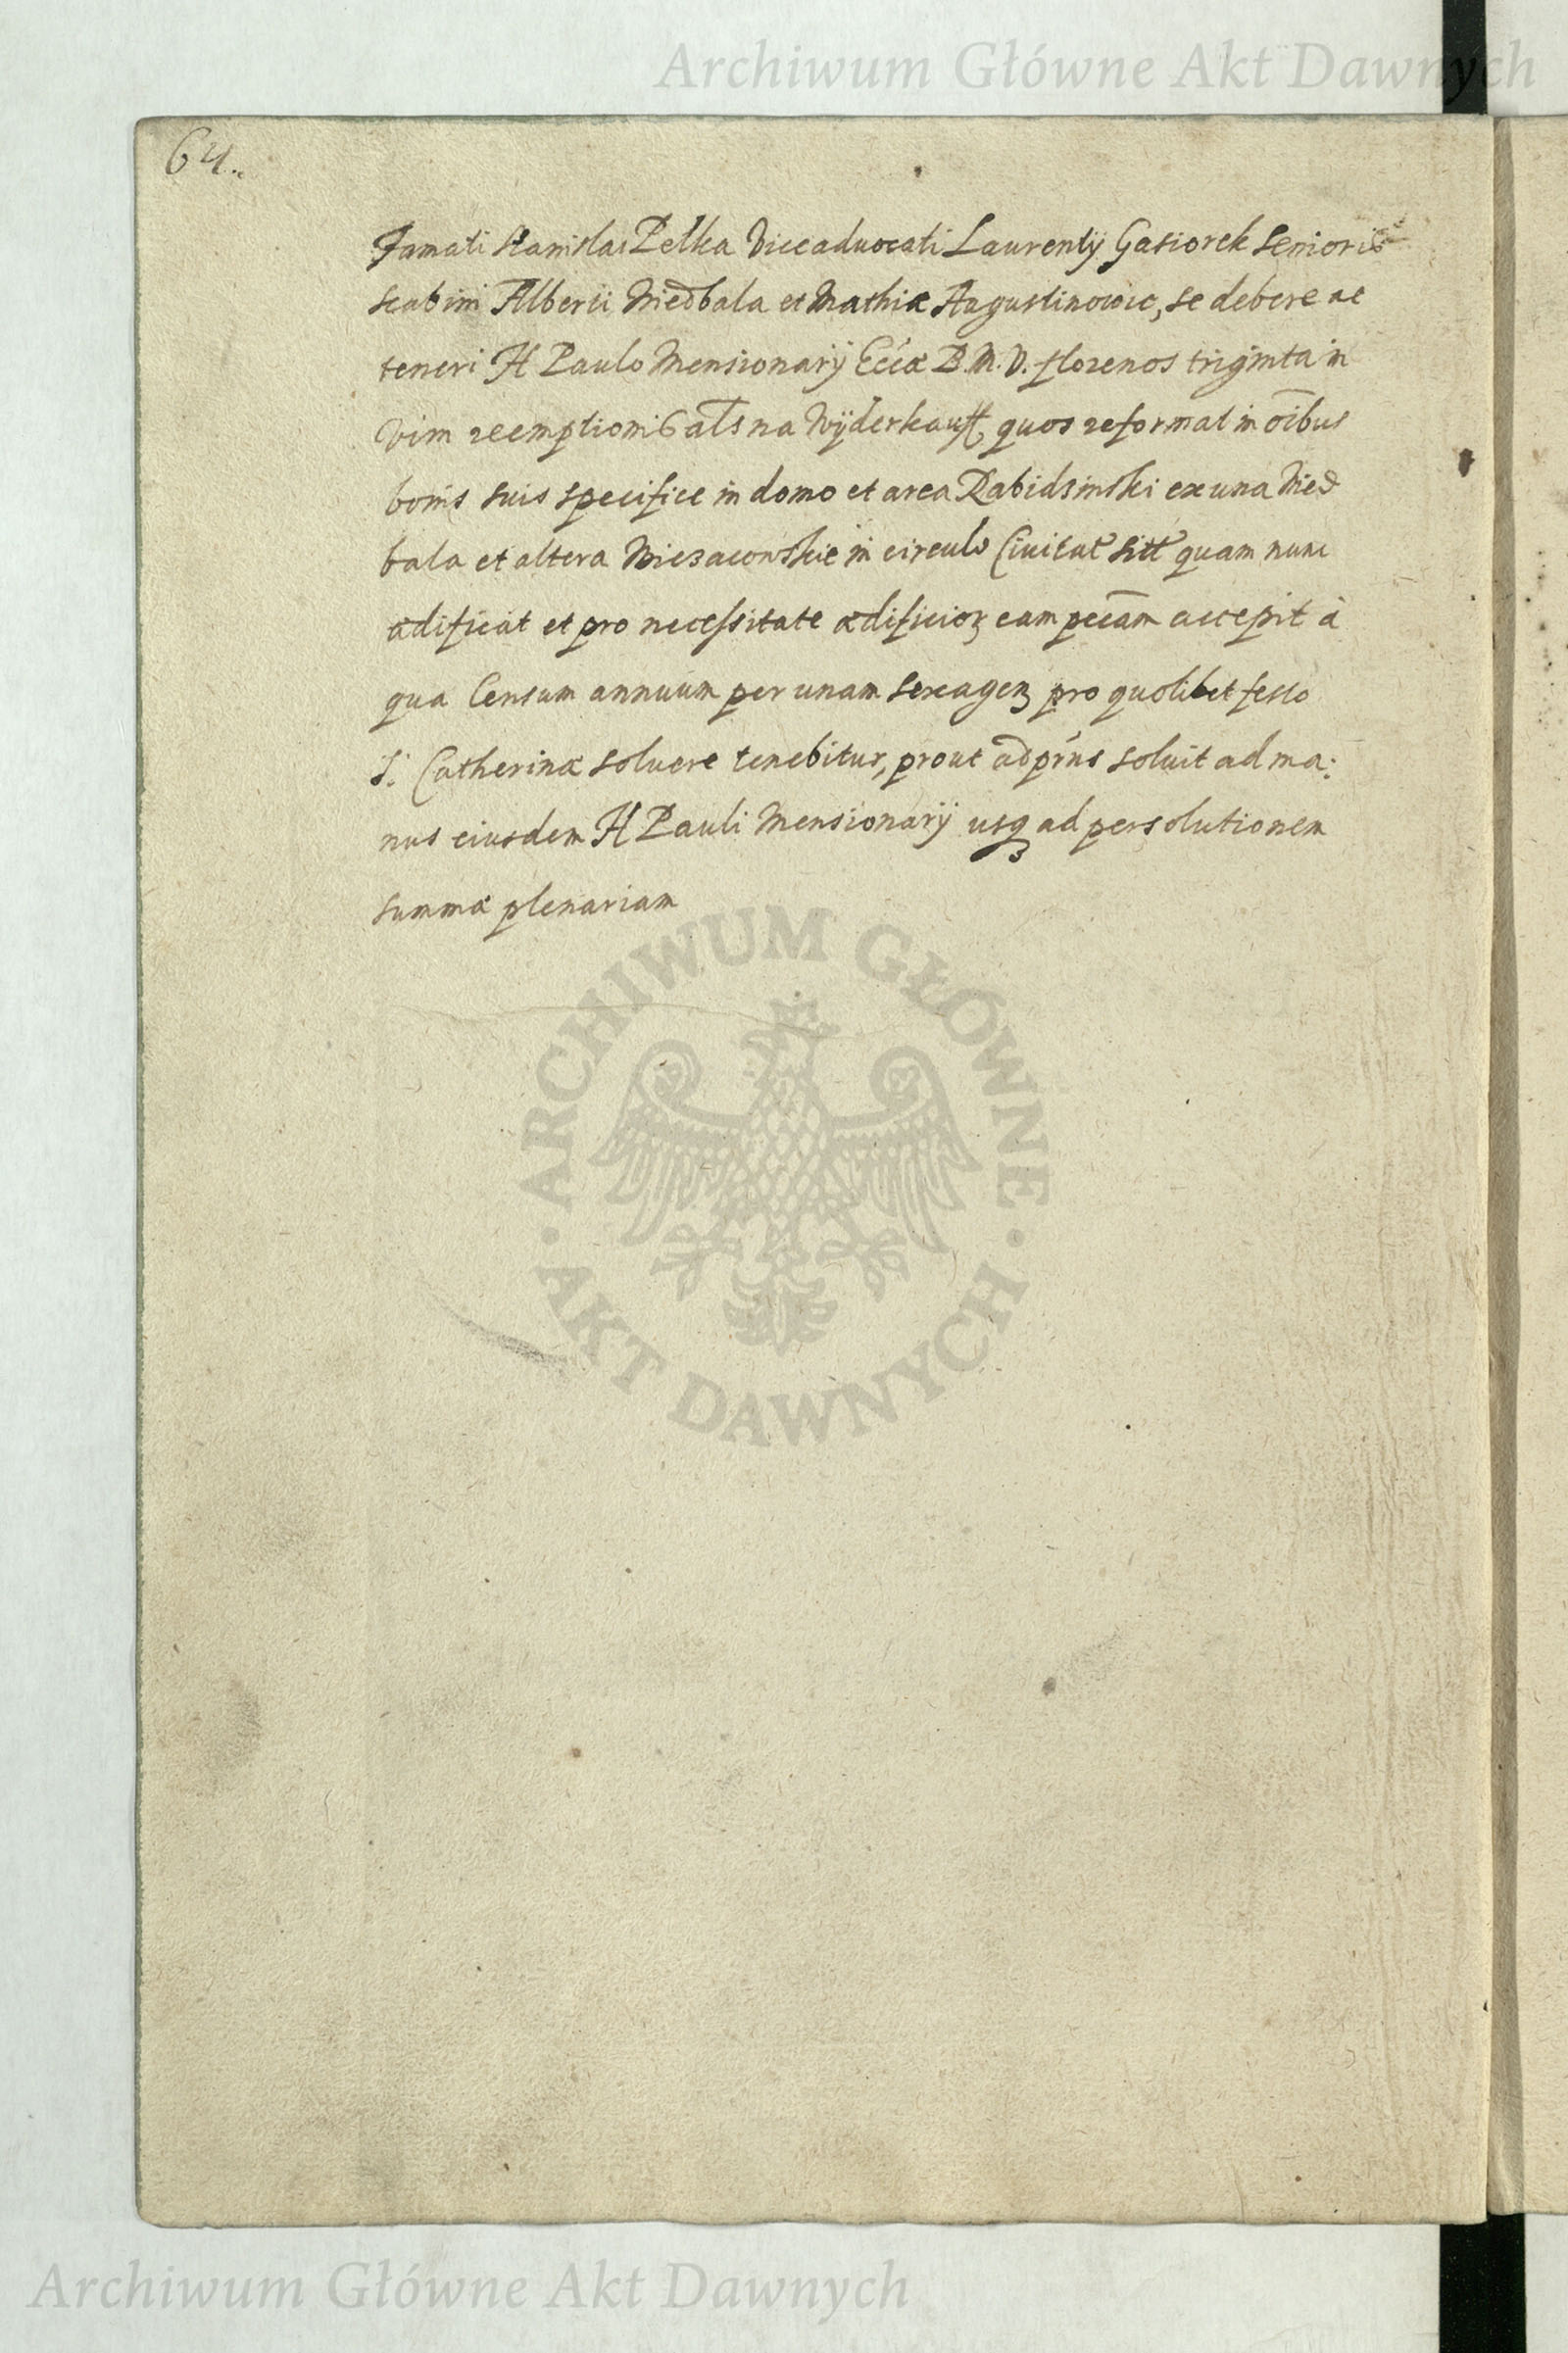 Archiwum Główne Akt Dawnych
64.
Famati Stanislai Pelka Viceaduocati Laurentÿ Gasiorek Senioris
Scabini Alberti Niedbala et Mathiæ Augustinowic, se debere ac
teneri H Paulo Mensionarÿ Eccæ B.M.V. florenos triginta in
vim reemptionis als na Wÿderkauff, quos reformat in oībus
bonis suis specifice in domo et area Rabidsinski ex una Nied
bala et altera in circulo Ciuitat sitt quam nunc
ædificat et pro necessitate ædificioꝝ eam pecām accepit à
qua Censum annuum per unam sexagen pro quolibet festo
S. Catherinæ soluere tenebitur, prout ad prńs soluit ad ma:
nus eiusdem H Pauli Mensionarÿ usqꝫ ad persolutionem
summæ plenariam
ARCHIWUM GŁÓWNE
· AKT DAWNYCH ·
Archiwum Główne Akt Dawnych